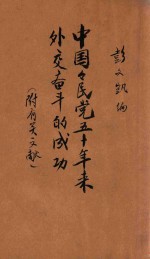 彭文凯编
中国国民党五十年来
外交奋斗的成功
(附有关文献)